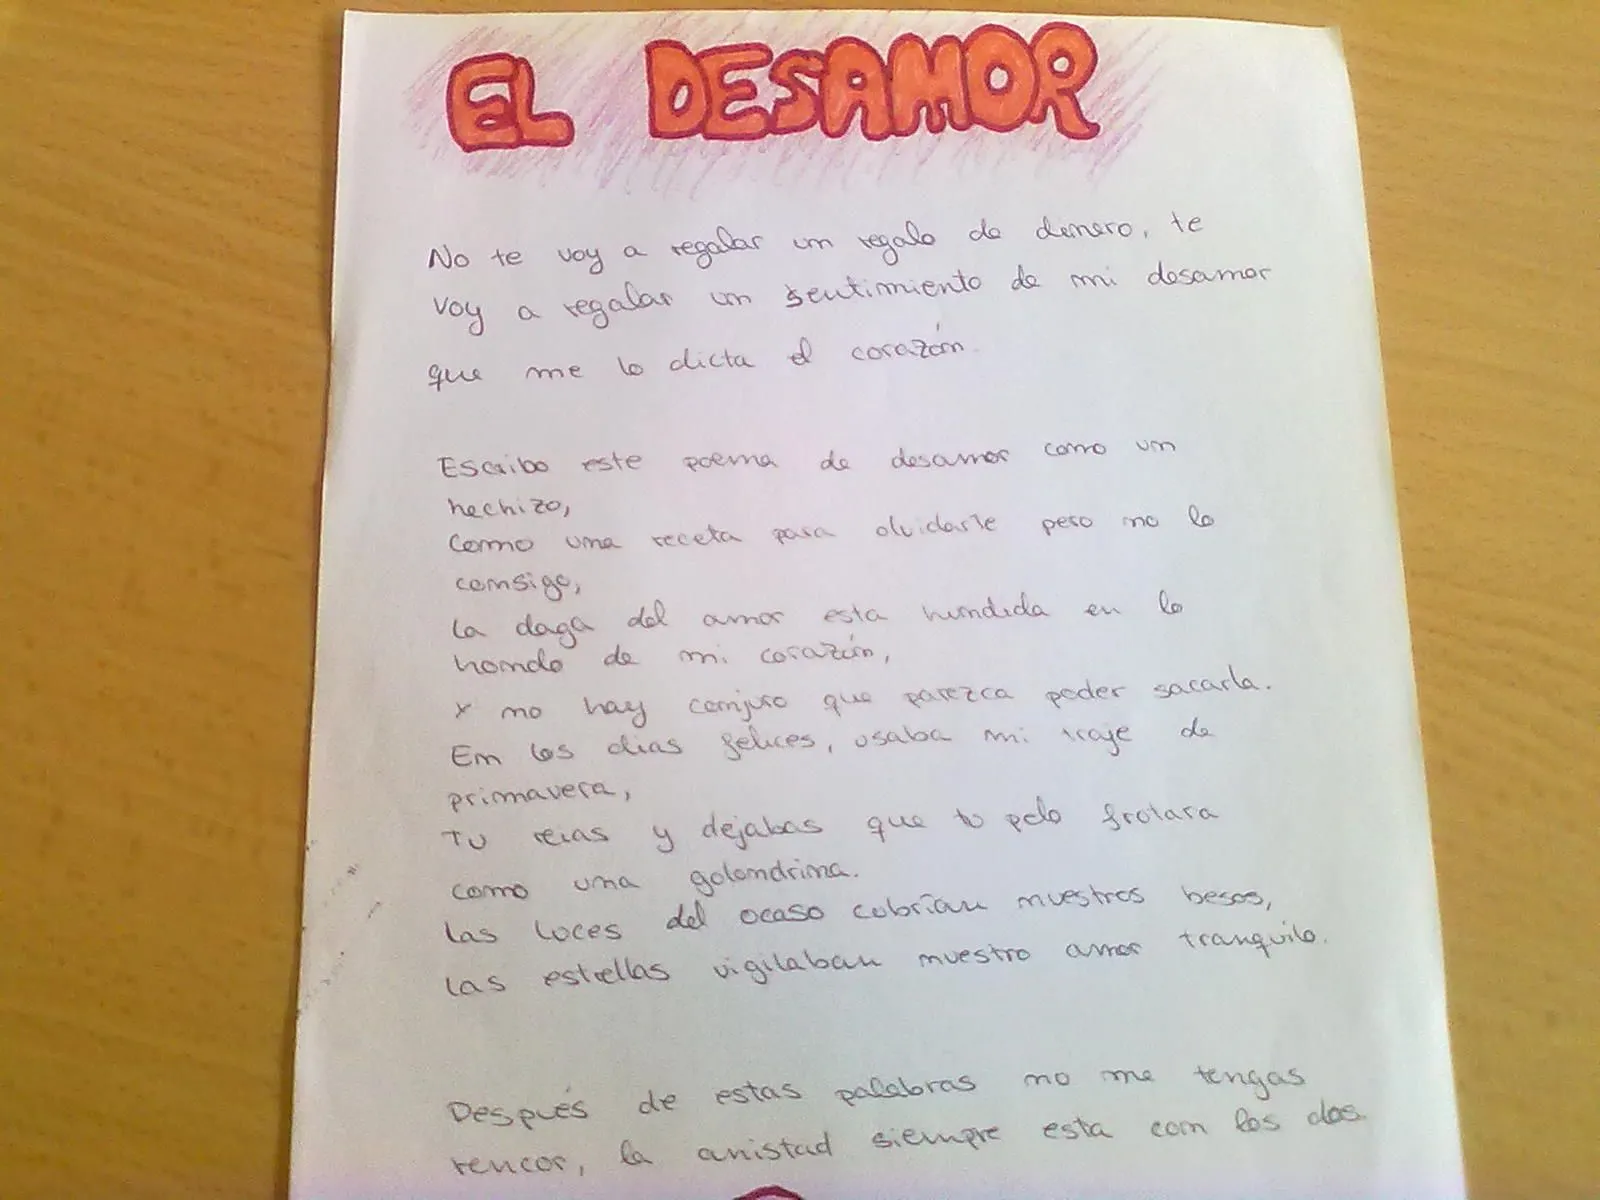 EL DESAMOR
No te voy a regalar un regalo de dinero, te
voy a regalar un sentimiento de mi desamor
que me lo dicta el corazón.
Escribo este poema de desamor como un
hechizo,
Como una receta para olvidarte pero no lo
consigo,
La daga del amor esta hundida en lo
hondo de mi corazón,
Y no hay conjuro que parezca poder sacarla.
En los dias felices, usaba mi traje de
primavera,
Tu reias y dejabas que tu pelo frotara
como una golondrina.
Las luces del ocaso cubrían nuestros besos,
Las estrellas vigilaban nuestro amor tranquilo.
Después de estas palabras no me tengas
rencor, la amistad siempre esta con los dos